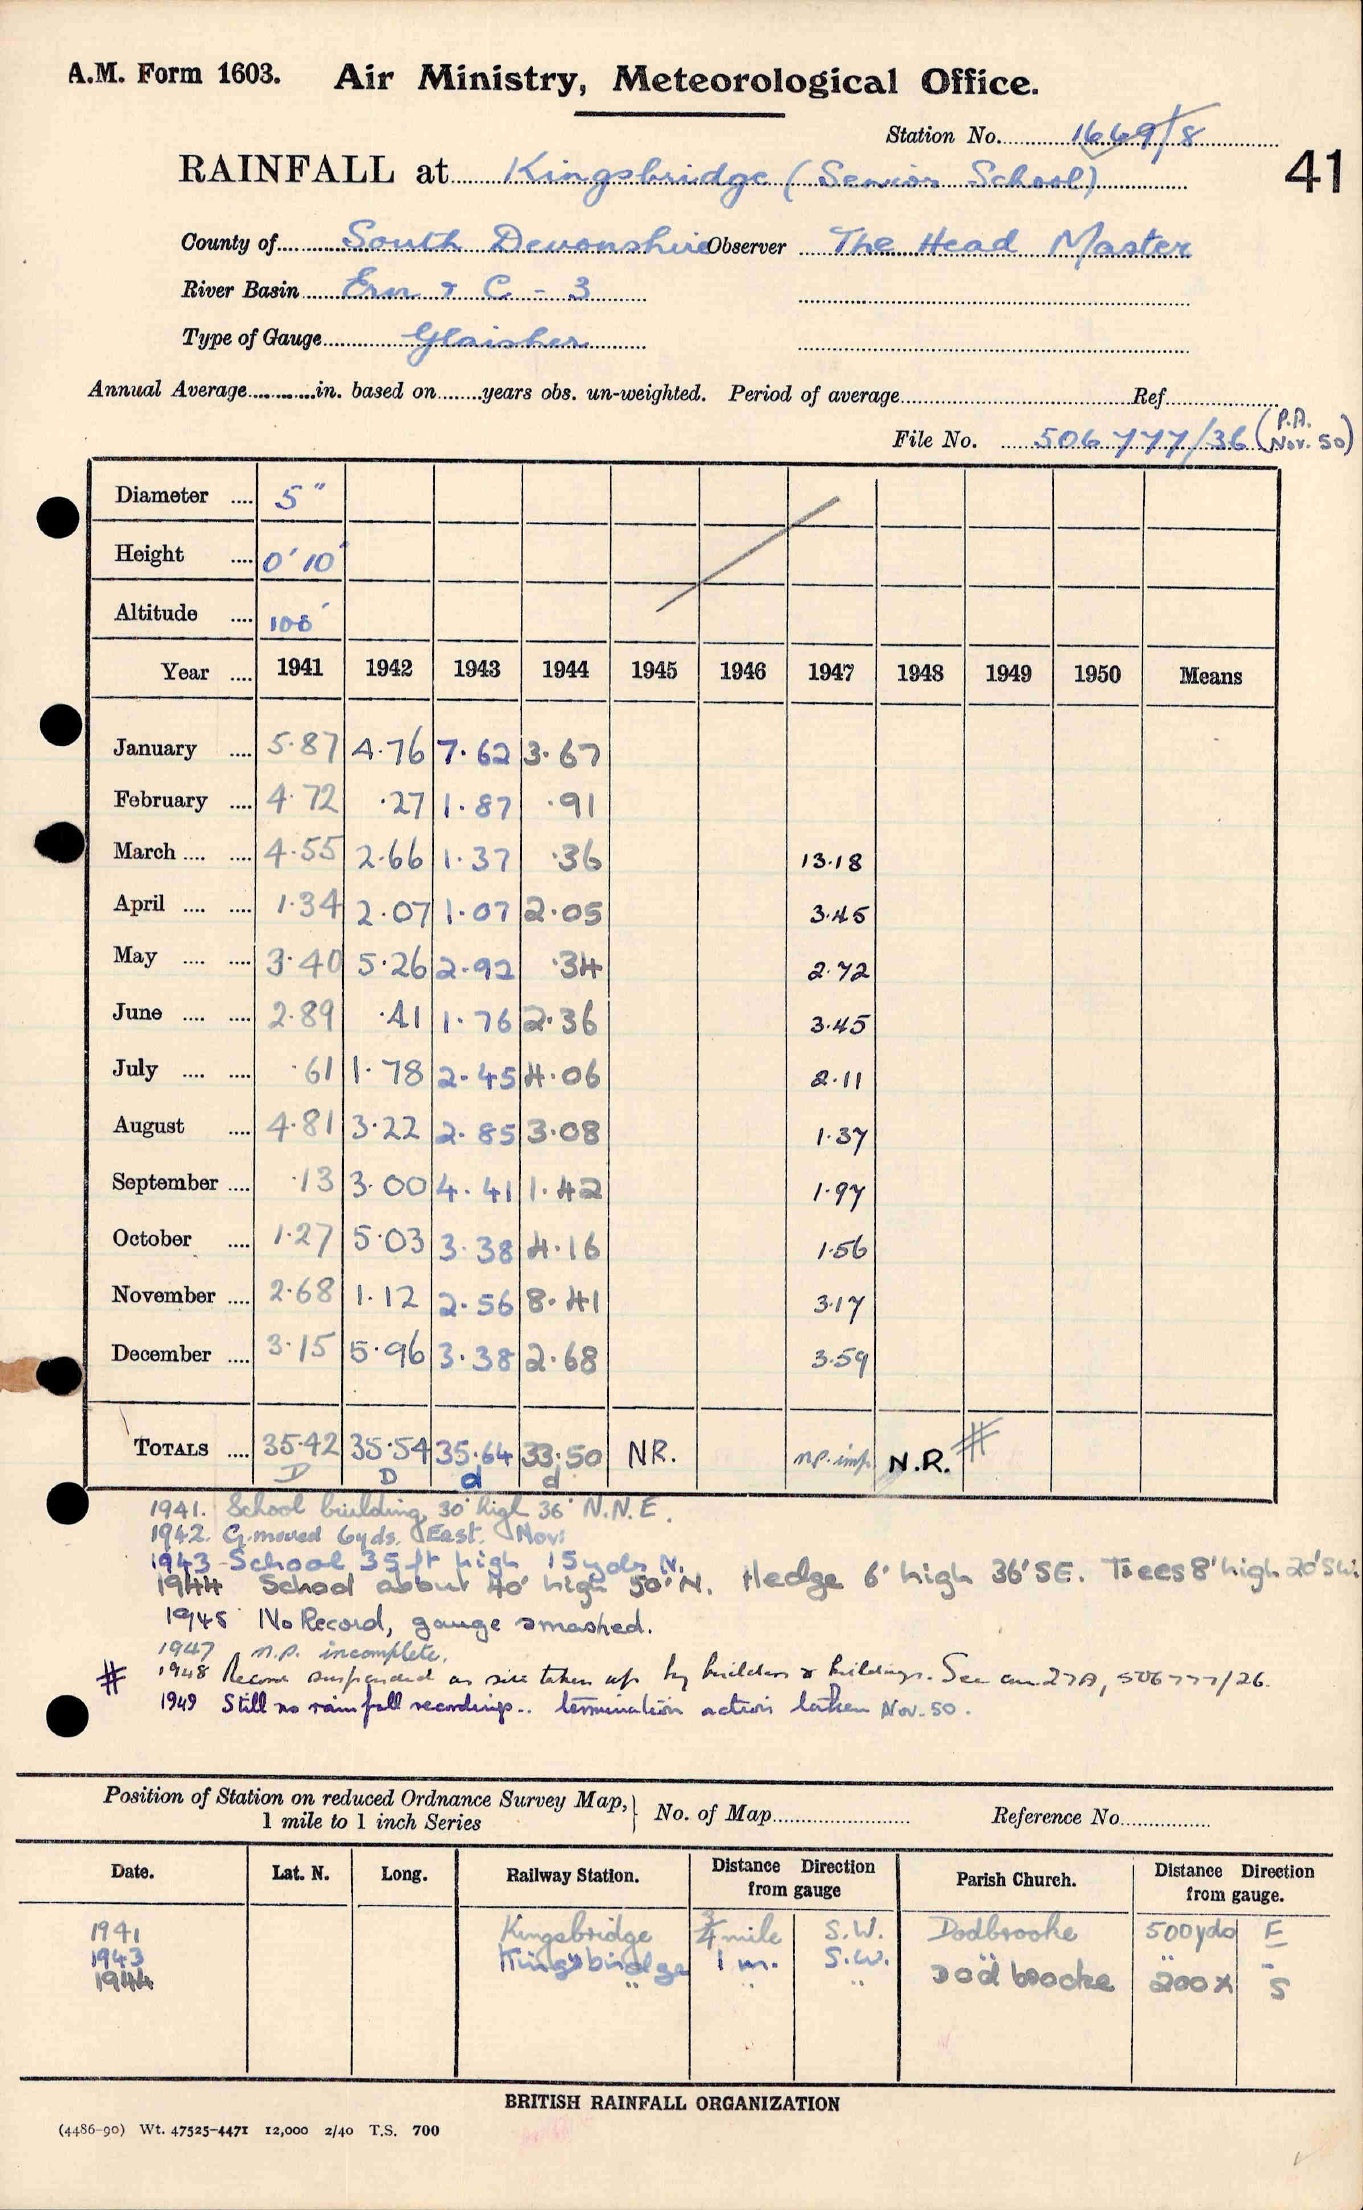 A.M. Form 1603. Air Ministry, Meteorological Office.
Station No. 1669/8
41
RAINFALL at Kingsbridge (Senior School)
County of South Devonshire Observer The Head Master
River Basin Erm & C - 3
Type of Gauge Glaisher
Annual Average in. based on years obs. un-weighted. Period of average Ref
File No. 506777/36 (P.A. Nov. 50)
Diameter 5"
Height 0' 10"
Altitude 108'
Year 1941 1942 1943 1944 1945 1946 1947 1948 1949 1950 Means
January 5.87 4.76 7.62 3.67
February 4.72 .27 1.87 .91
March 4.55 2.66 1.37 .36 13.18
April 1.34 2.07 1.07 2.05 3.45
May 3.40 5.26 2.92 .34 2.72
June 2.89 .41 1.76 2.36 3.45
July .61 1.78 2.45 4.06 2.11
August 4.81 3.22 2.85 3.08 1.37
September .13 3.00 4.41 1.42 1.97
October 1.27 5.03 3.38 4.16 1.56
November 2.68 1.12 2.56 8.41 3.17
December 3.15 5.96 3.38 2.68 3.59
TOTALS 35.42 35.54 35.64 33.50 NR. n.p. imp. N.R. #
D D d d
1941. School building 30' high 36' N.N.E.
1942. G. moved 6yds. East. Nov:
1943 School 35ft high 15yds N.
1944 School about 40' high 50' N. Hedge 6' high 36' SE. Trees 8' high 20' SW.
1945 No Record, gauge smashed.
1947 n.p. incomplete.
# 1948 Record suspended as site taken up by builders & buildings. See 27A, 506777/26.
1949 Still no rainfall recordings.. termination action taken Nov. 50.
Position of Station on reduced Ordnance Survey Map, 1 mile to 1 inch Series } No. of Map Reference No.
Date. Lat. N. Long. Railway Station. Distance Direction from gauge Parish Church. Distance Direction from gauge.
1941 Kingsbridge 3/4 mile S.W. Dodbrooke 500yds E
1943 Kingsbridge 1 m. S.W. " " "
1944 " " " Dodbrooke 200x S
BRITISH RAINFALL ORGANIZATION
(4486-90) Wt. 47525-4471 12,000 2/40 T.S. 700